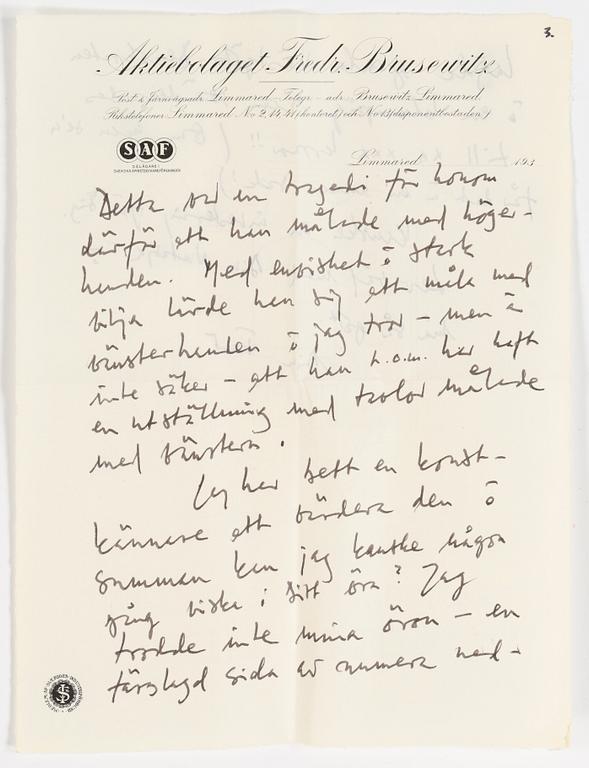 3.
Aktiebolaget Fredr. Brusewitz
Post- & Järnvägsadr. Limmared – Telegr. – adr. Brusewitz Limmared
Rikstelefoner Limmared No 2, 14, 41 (kontoret) och No 13 (disponentbostaden)
SAF
DELÄGARE I
SVENSKA ARBETSGIVAREFÖRENINGEN
Limmared 193
Detta var en tragedi för honom
därför att han målade med höger-
handen. Med envishet o stark
vilja lärde han sig att måla med
vänsterhanden o jag tror – men är
inte säker – att han t.o.m. har haft
en utställning med tavlor målade
med vänstern.
Jag har bett en konst-
kännare att värdera den o
summan kan jag kanske någon
gång viska i ditt öra? Jag
trodde inte mina öron – en
färglagd sida av numera ned-